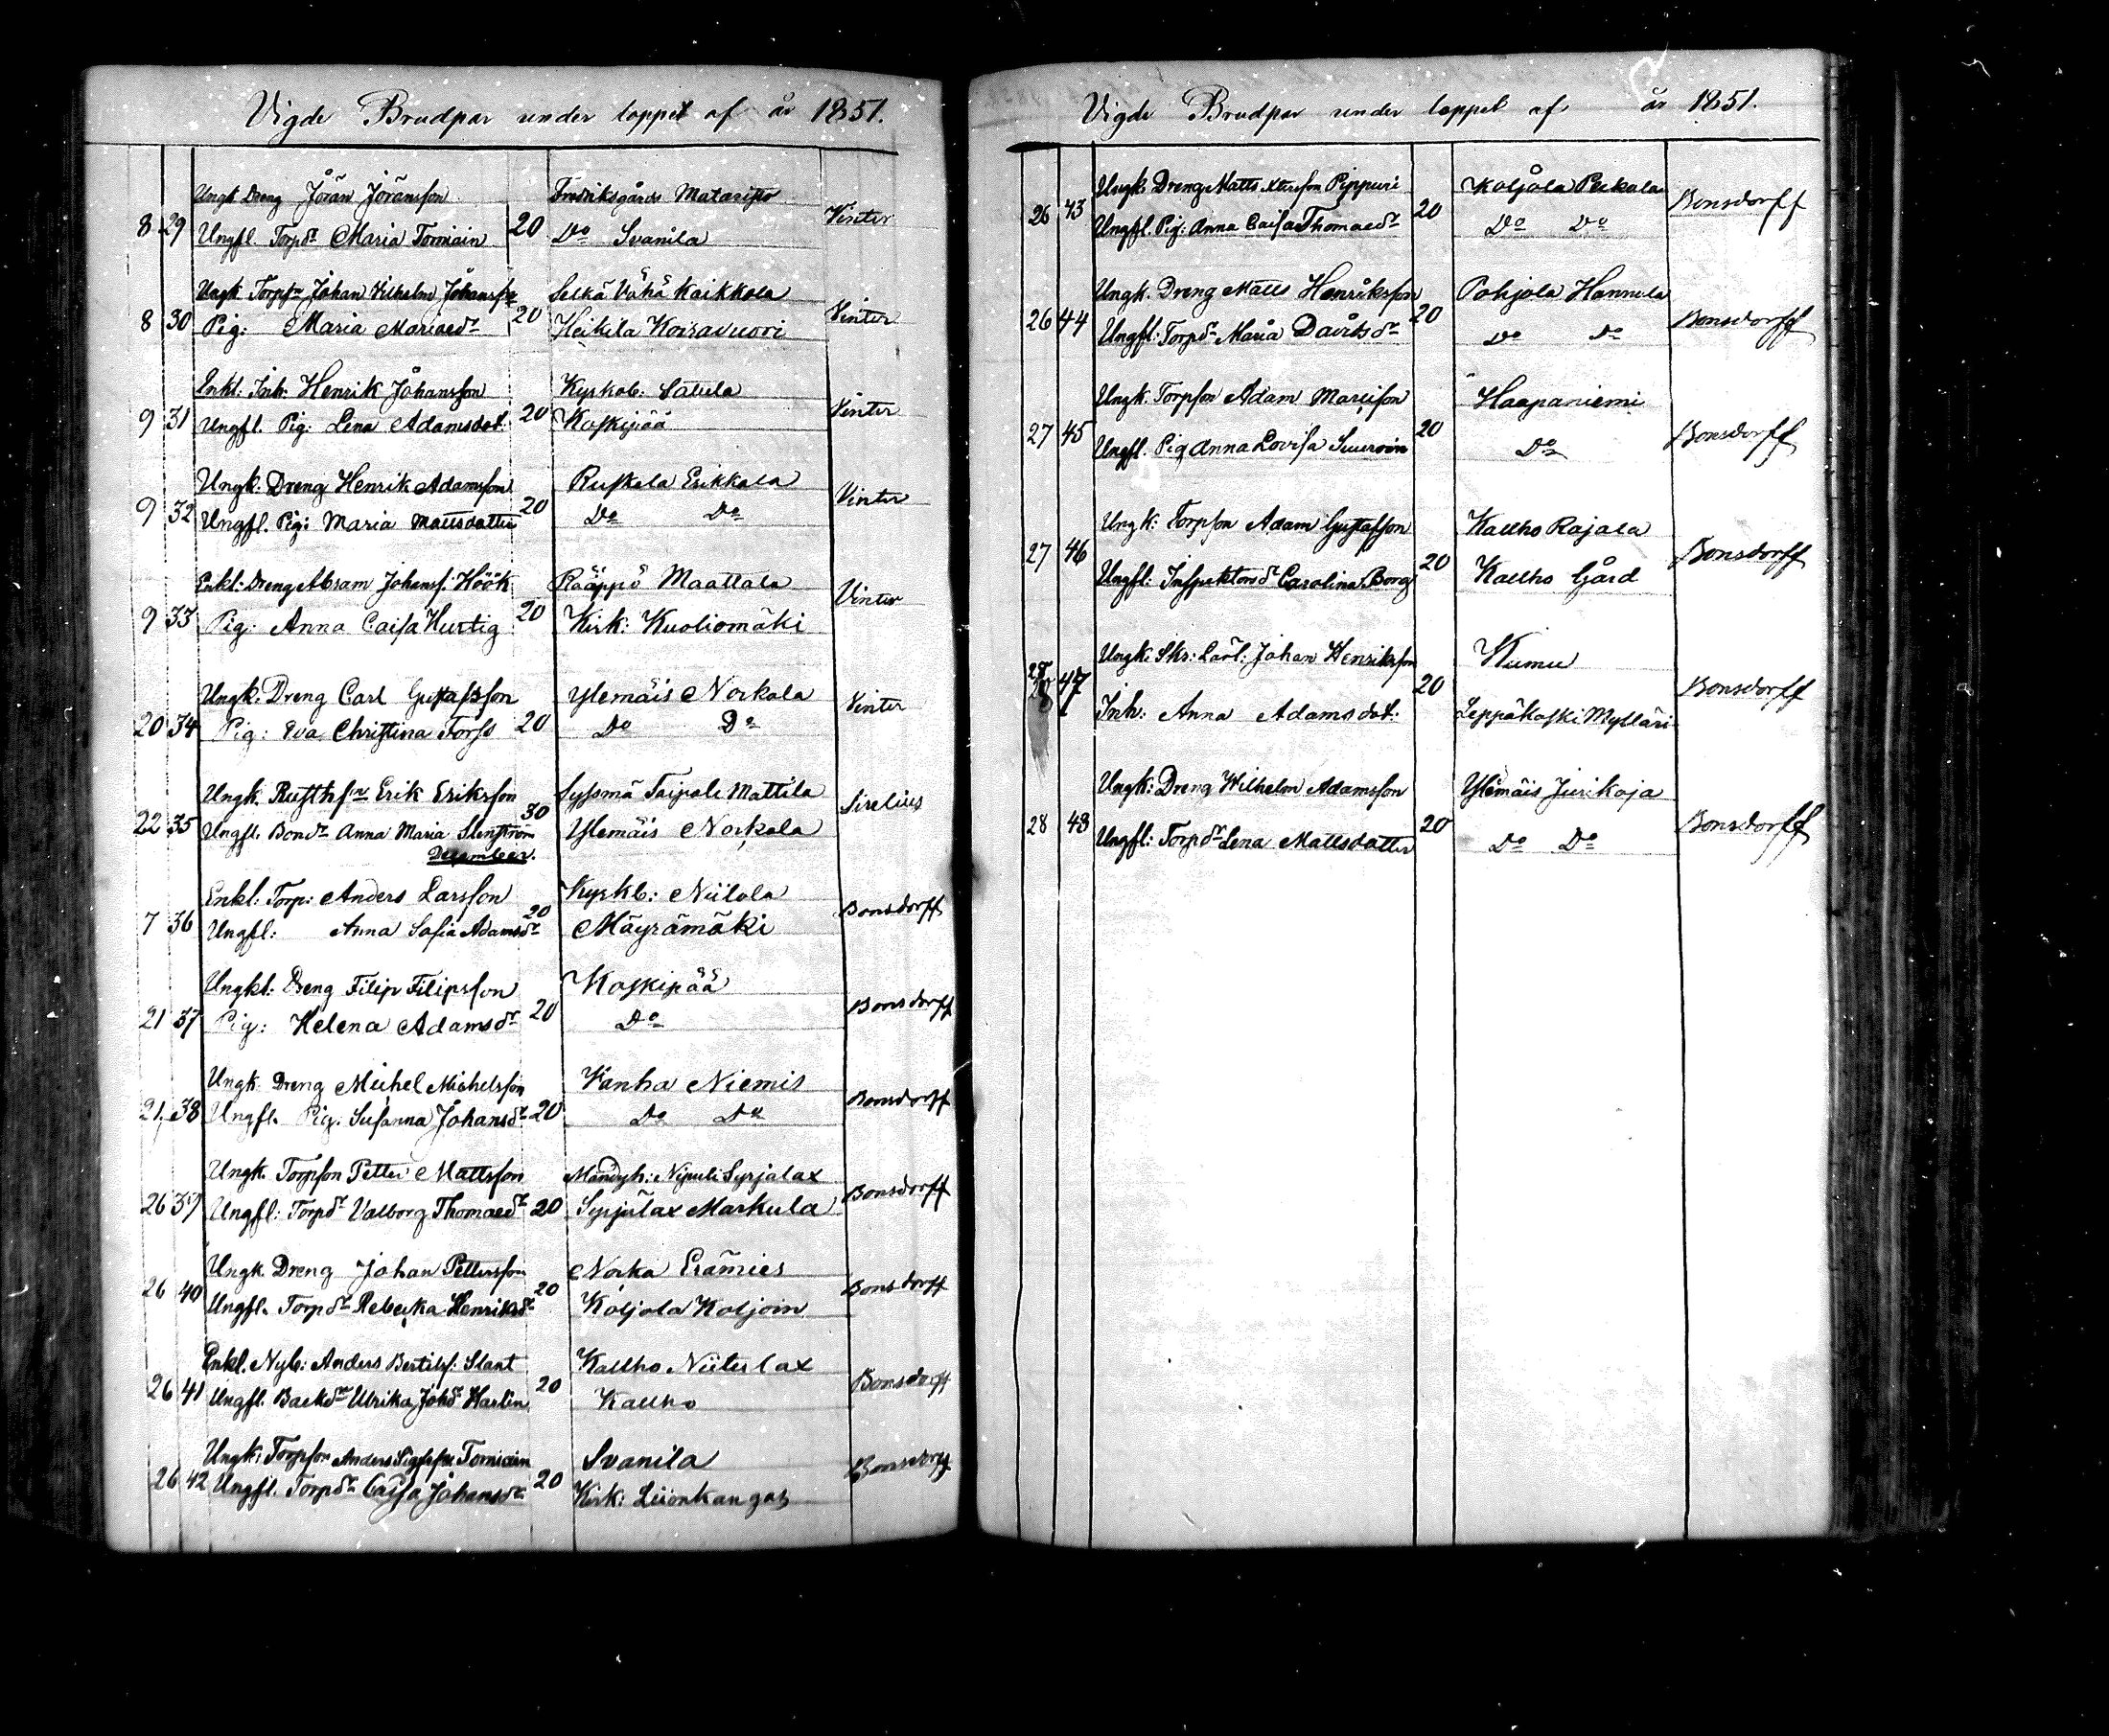 Vigde Brudpar under loppet af år 1851.
Ungk Dreng Jöran Göransson Fredriksgårds
8 29 Ungfl. Torpdr Maria Torniain 20 Do Svanila Vinter
Ungk Torpsn Johan Vilhelm Johansson Selkä Vähä Kaikkola
8 30 Pig: Maria Mariaedr 20 Heikila Koisavuori Vinter
Enkl: Inh: Henrik Johansson Kyrkob: Satula
9 31 Ungfl. Pig: Lena Adamsdot: 20 Koskipää Vinter
Ungk: Dreng Henrik Adamsson Ruskala Erikkala
9 32 Ungfl. Pig: Maria Mattsdotter 20 Do Do Vinter
Enkl: Dreng Abram Johanss: Höök Rääppö Maattala
9 33 Pig: Anna Caisa Hurtig 20 Kirk: Kuoliomäki Vinter
Ungk: Dreng Carl Gustafsson Ylemäis Norkala
20 34 Pig: Eva Christina Forss 20 Do Do Vinter
Ungk. Rusthsn Erik Eriksson Syssmä Taipale Mattila
22 35 Ungfl. Bondr Anna Maria Stenström 30 Ylemäis Norkala Sirelius
December.
Enkl: Torp: Anders Larsson Kyrkb: Niilola
7 36 Ungfl: Anna Sofia Adamsdr 20 Mäyrämäki Bonsdorff
Ungkl: Dreng Filip Filipsson Koskipää
21 37 Pig: Helena Adamsdr 20 Do Bonsdorff
Ungk. Dreng Michel Michelsson Vanha Niemis
21. 38 Ungfl. Pig. Susanna Johansdr 20 Do Do Bonsdorff
Ungk. Torpson Petter Mattsson Syrjälax
26 39 Ungfl: Torpdr Valborg Thomaedr 20 Syrjälax Markula Bonsdorff
Ungk. Dreng Johan Pettersson Norka Erämies
26 40 Ungfl. Torpdr Rebecka Henriksdr 20 Koljola Koljoin Bonsdorff
Enkl. Nyb: Anders Bertils: Slant Kalho Niiterlax
26 41 Ungfl. Backdr Ulrika Johdr Harlin 20 Kalho Bonsdorff
Ungk: Torpson Anders Torniain Svanila
26 42 Ungfl. Torpdr Cajsa Johansdr 20 Kirk: Liionkangas Bonsdorff
Vigde Brudpar under loppet af år 1851.
Ungk. Dreng Matts Pippuri Koljola Pekala
26 43 Ungfl. Pig: Anna Caisa Thomaedr 20 Do Do Bonsdorff
Ungk. Dreng Matts Henriksson Pohjola Hannula
26 44 Ungfl: Torpdr Maria Davidsdr 20 Do Do Bonsdorff
Ungk. Torpson Adam Mariison Haapaniemi
27 45 Ungfl. Pig Anna Lovisa Suuroin 20 Do Bonsdorff
Ungk: Torpson Adam Gustafsson Kalho Rajala
27 46 Ungfl: Inspektorsdr Carolina Borg 20 Kalho Gård Bonsdorff
Ungk: Skr: Lärl: Johan Henriksson Kumu
28 47 Inh: Anna Adamsdot: 20 Leppäkoski Mylläri Bonsdorff
Ungk: Dreng Wilhelm Adamsson Ylemäis Juikoja
28 48 Ungfl: Torpdr Lena Mattsdotter 20 Do Do Bonsdorff